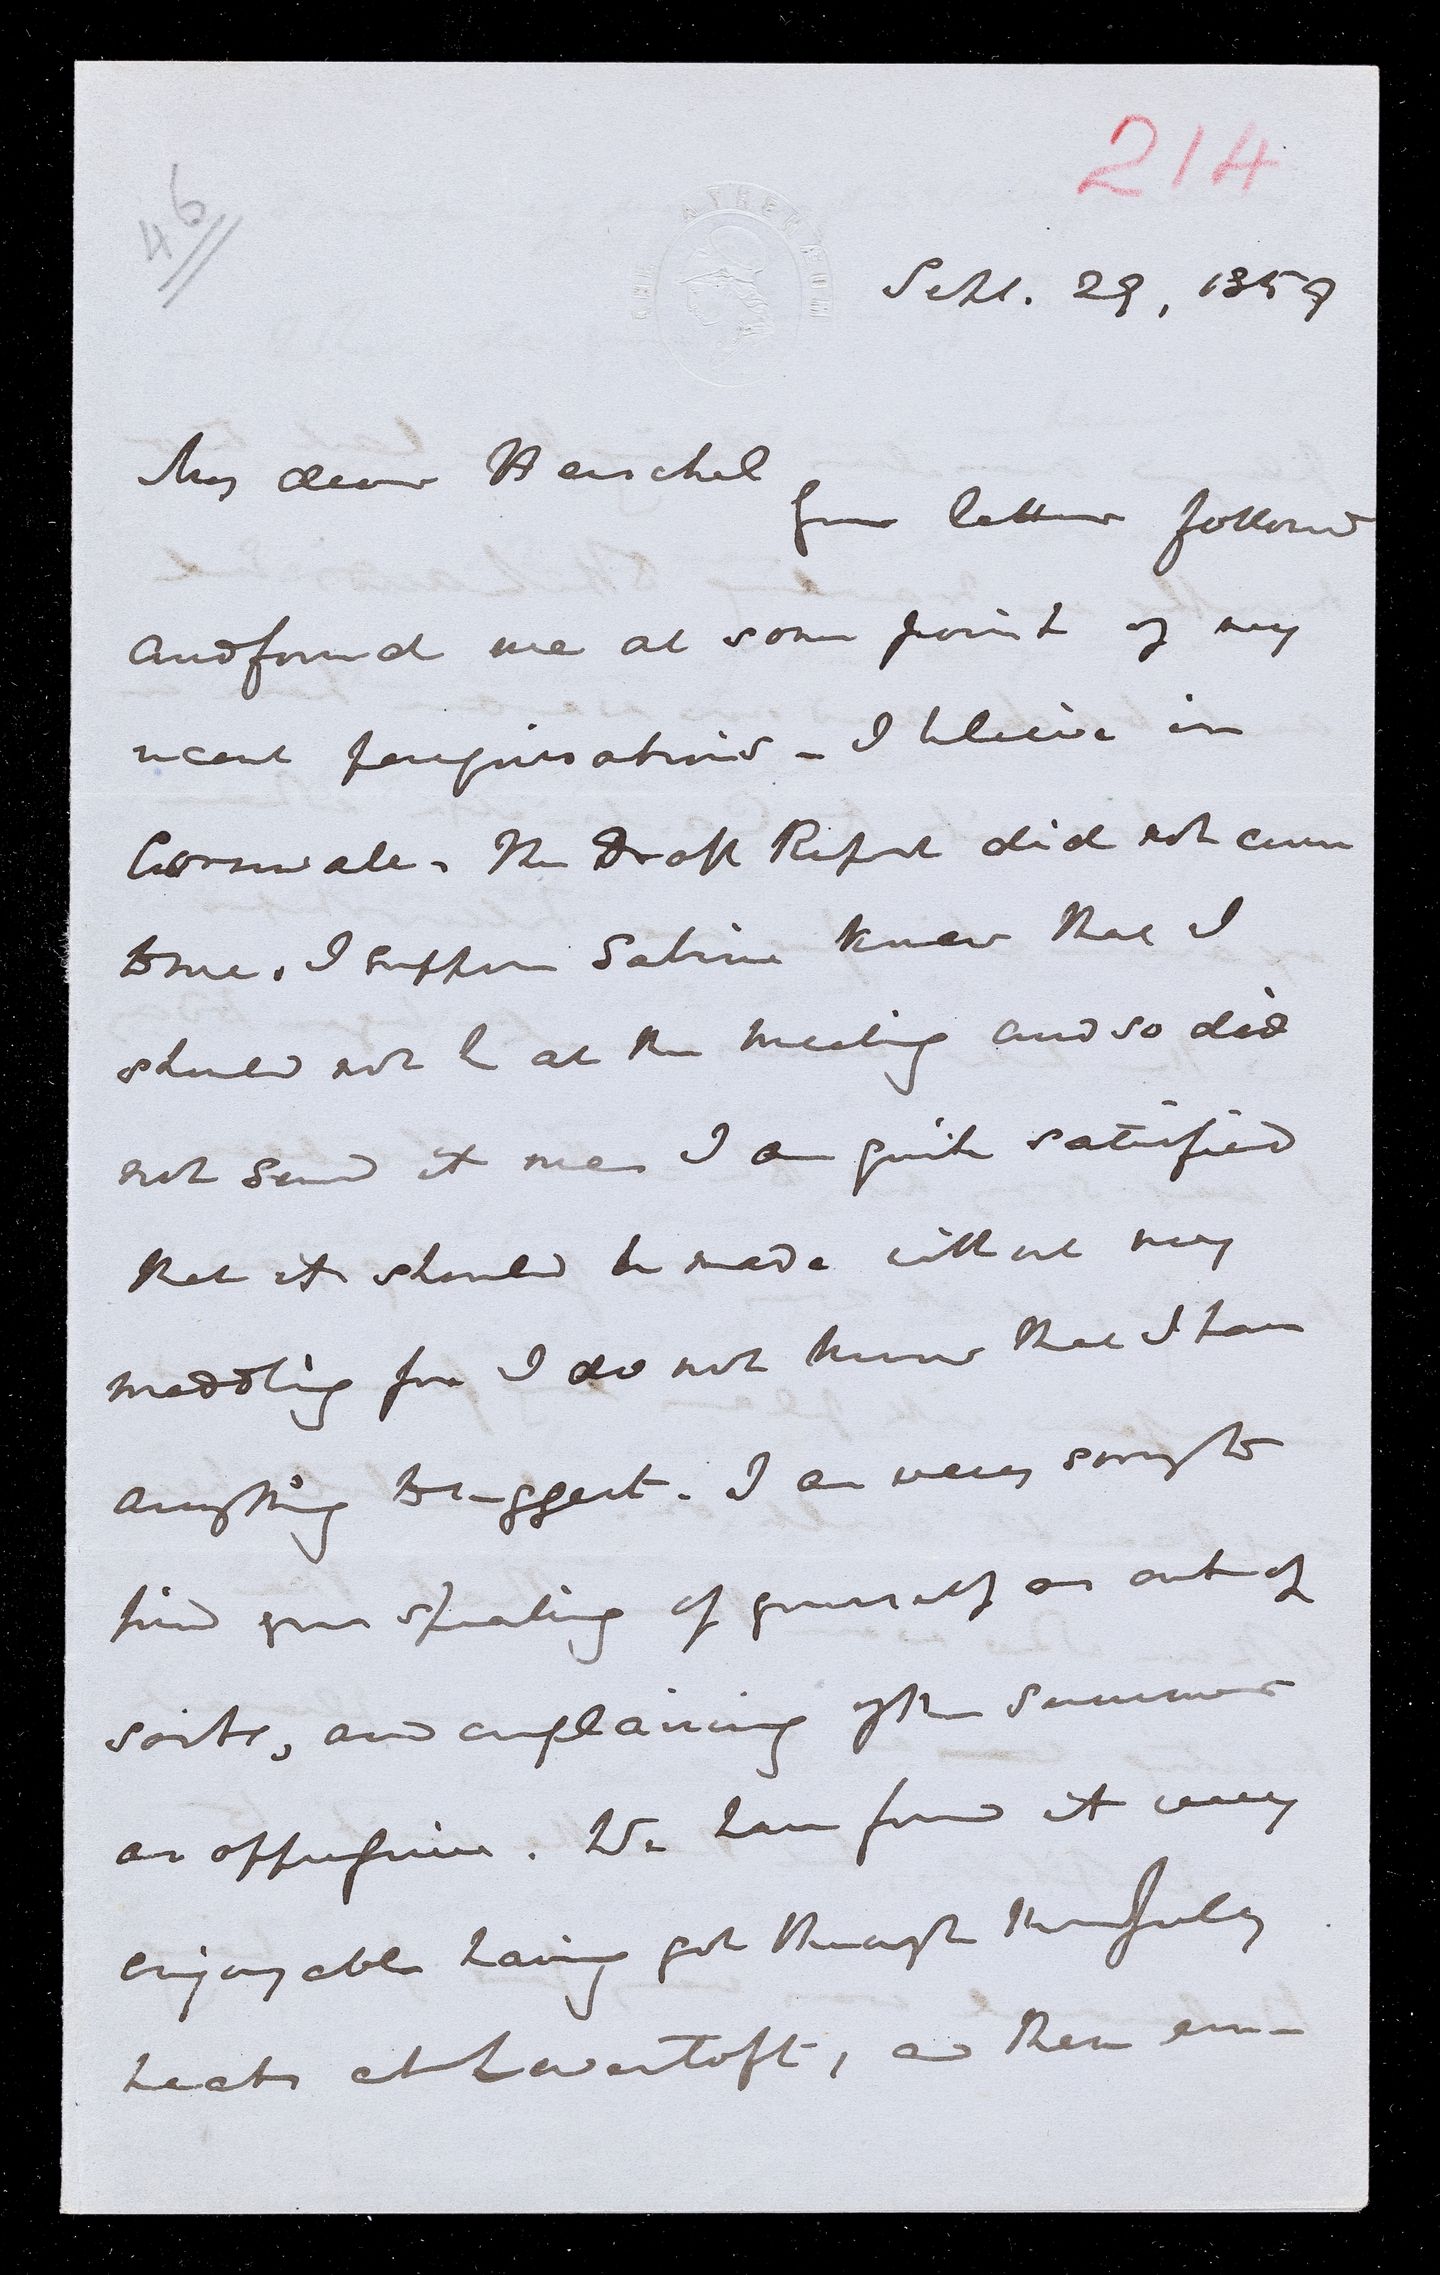 214
46
THE ATHENÆUM
Sept. 29, 1859
My dear Herschel
Your letter followed
and found me at some point of my
recent peregrinations - I believe in
Cornwall. The Draft Report did not come
to me. I suppose Sabine knew that I
should not be at the meeting and so did
not send it me. I am quite satisfied
that it should be made without my
meddling for I do not know that I have
anything to suggest. I am very sorry to
find you speaking of yourself as out of
sorts, and complaining of the summer
as oppressive. We have found it very
enjoyable having got through the July
heats at Lowestoft, and then em-